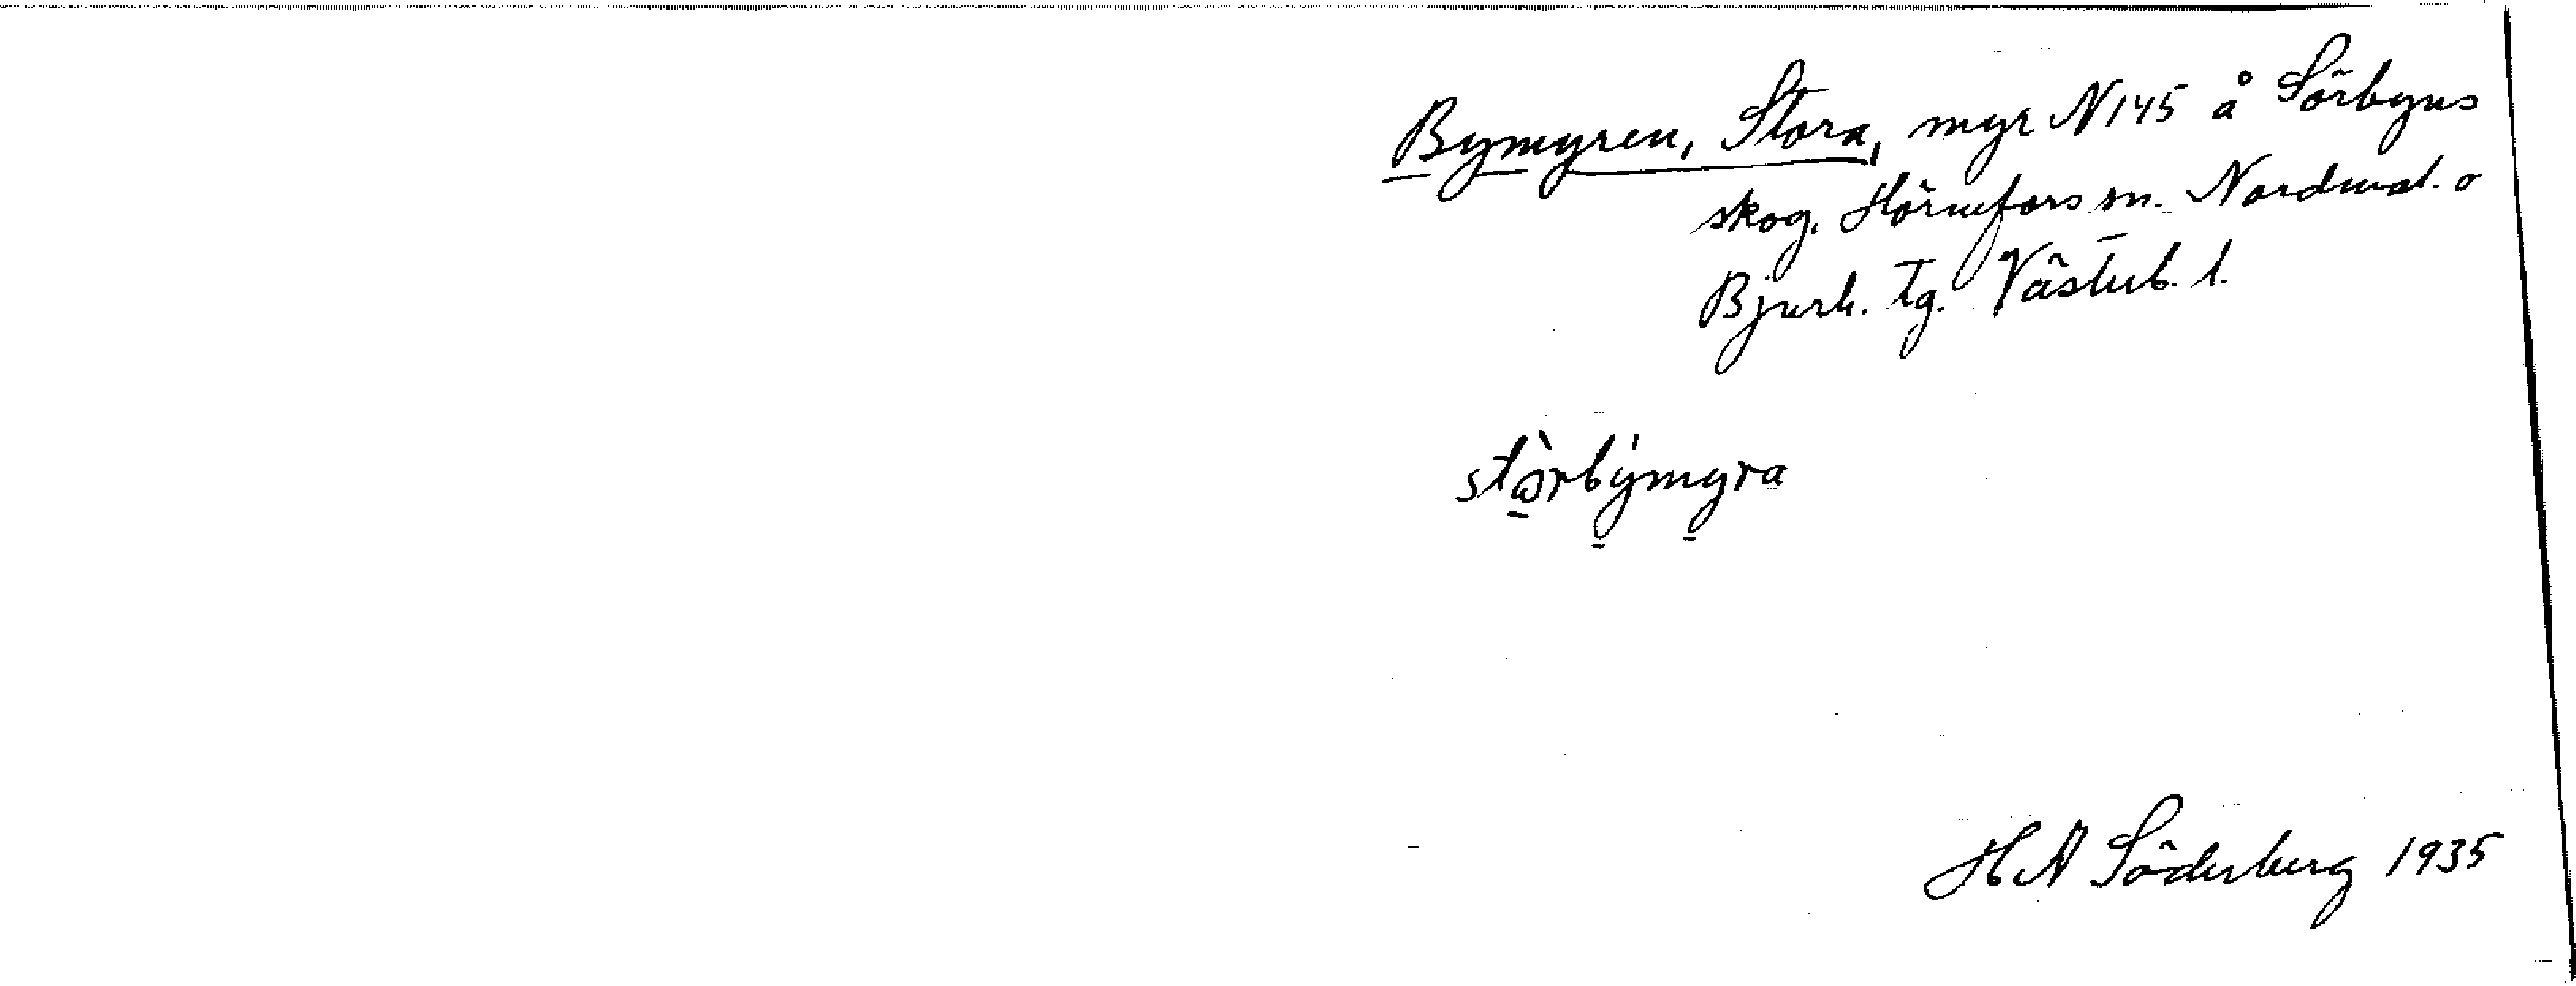 Bymyren, Stora, myr N145 å Sörbyns
skog. Hörnefors sn. Nordmal. o
Bjurh. tg. Västerb. l.
stòrbýmyra
HA Söderberg 1935